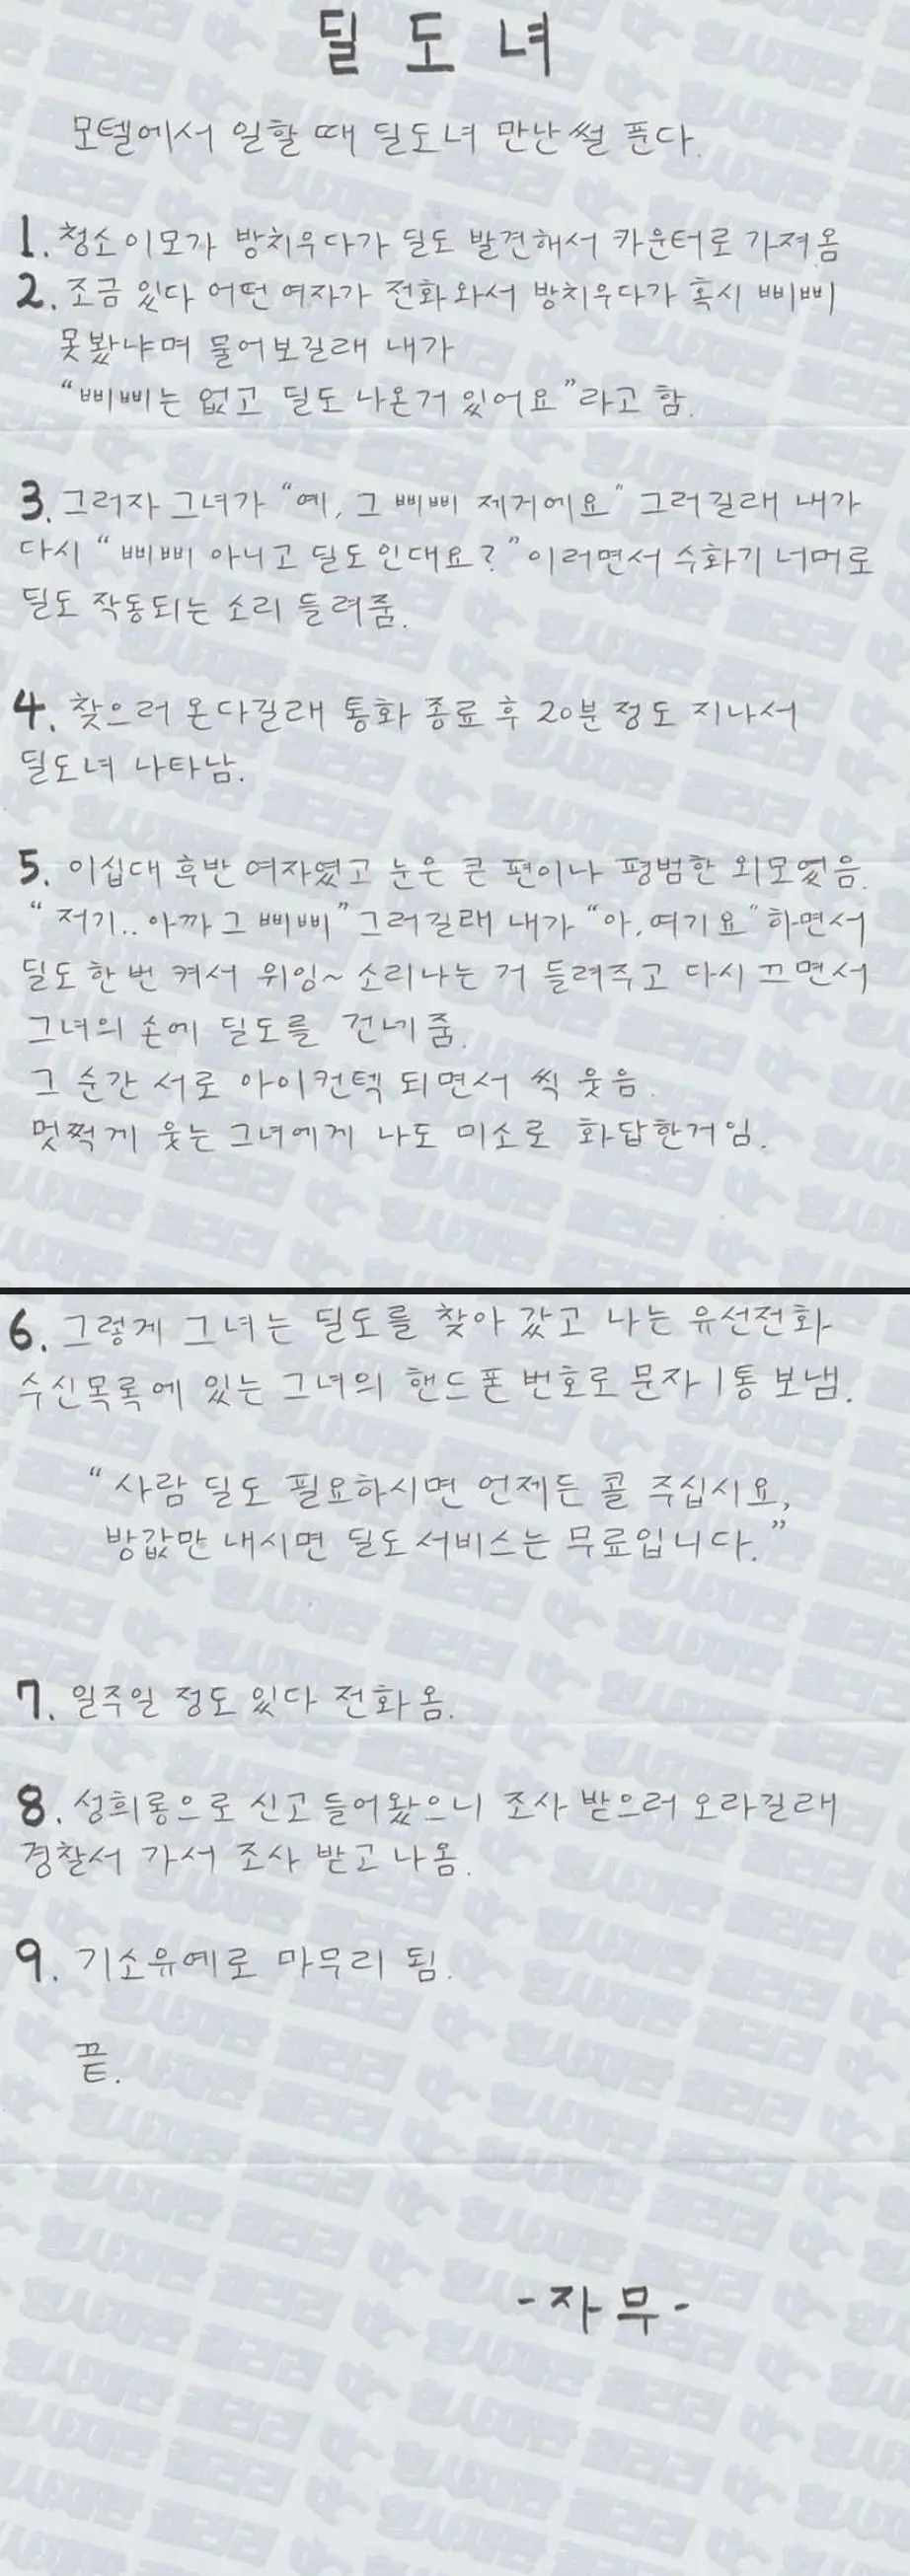 딜 도 녀
모텔에서 일할 때 딜도녀 만난 썰 푼다.
1. 청소 이모가 방치우다가 딜도 발견해서 카운터로 가져옴
2. 조금 있다 어떤 여자가 전화 와서 방치우다가 혹시 삐삐
못봤냐며 물어보길래 내가
“삐삐는 없고 딜도 나온거 있어요”라고 함.
3. 그러자 그녀가 “예, 그 삐삐 제거에요” 그러길래 내가
다시 “삐삐 아니고 딜도인대요?” 이러면서 수화기 너머로
딜도 작동되는 소리 들려줌.
4. 찾으러 온다길래 통화 종료 후 20분 정도 지나서
딜도녀 나타남.
5. 이십대 후반 여자였고 눈은 큰 편이나 평범한 외모였음.
“저기.. 아까 그 삐삐” 그러길래 내가 “아, 여기요” 하면서
딜도 한번 켜서 위잉~ 소리나는 거 들려주고 다시 끄면서
그녀의 손에 딜도를 건네줌.
그 순간 서로 아이컨텍 되면서 씩 웃음.
멋쩍게 웃는 그녀에게 나도 미소로 화답한거임.
6. 그렇게 그녀는 딜도를 찾아 갔고 나는 유선전화
수신목록에 있는 그녀의 핸드폰 번호로 문자 1통 보냄.
“사람 딜도 필요하시면 언제든 콜 주십시요,
방값만 내시면 딜도 서비스는 무료입니다.”
7. 일주일 정도 있다 전화 옴.
8. 성희롱으로 신고 들어왔으니 조사 받으러 오라길래
경찰서 가서 조사 받고 나옴.
9. 기소유예로 마무리 됨.
끝.
-자무-